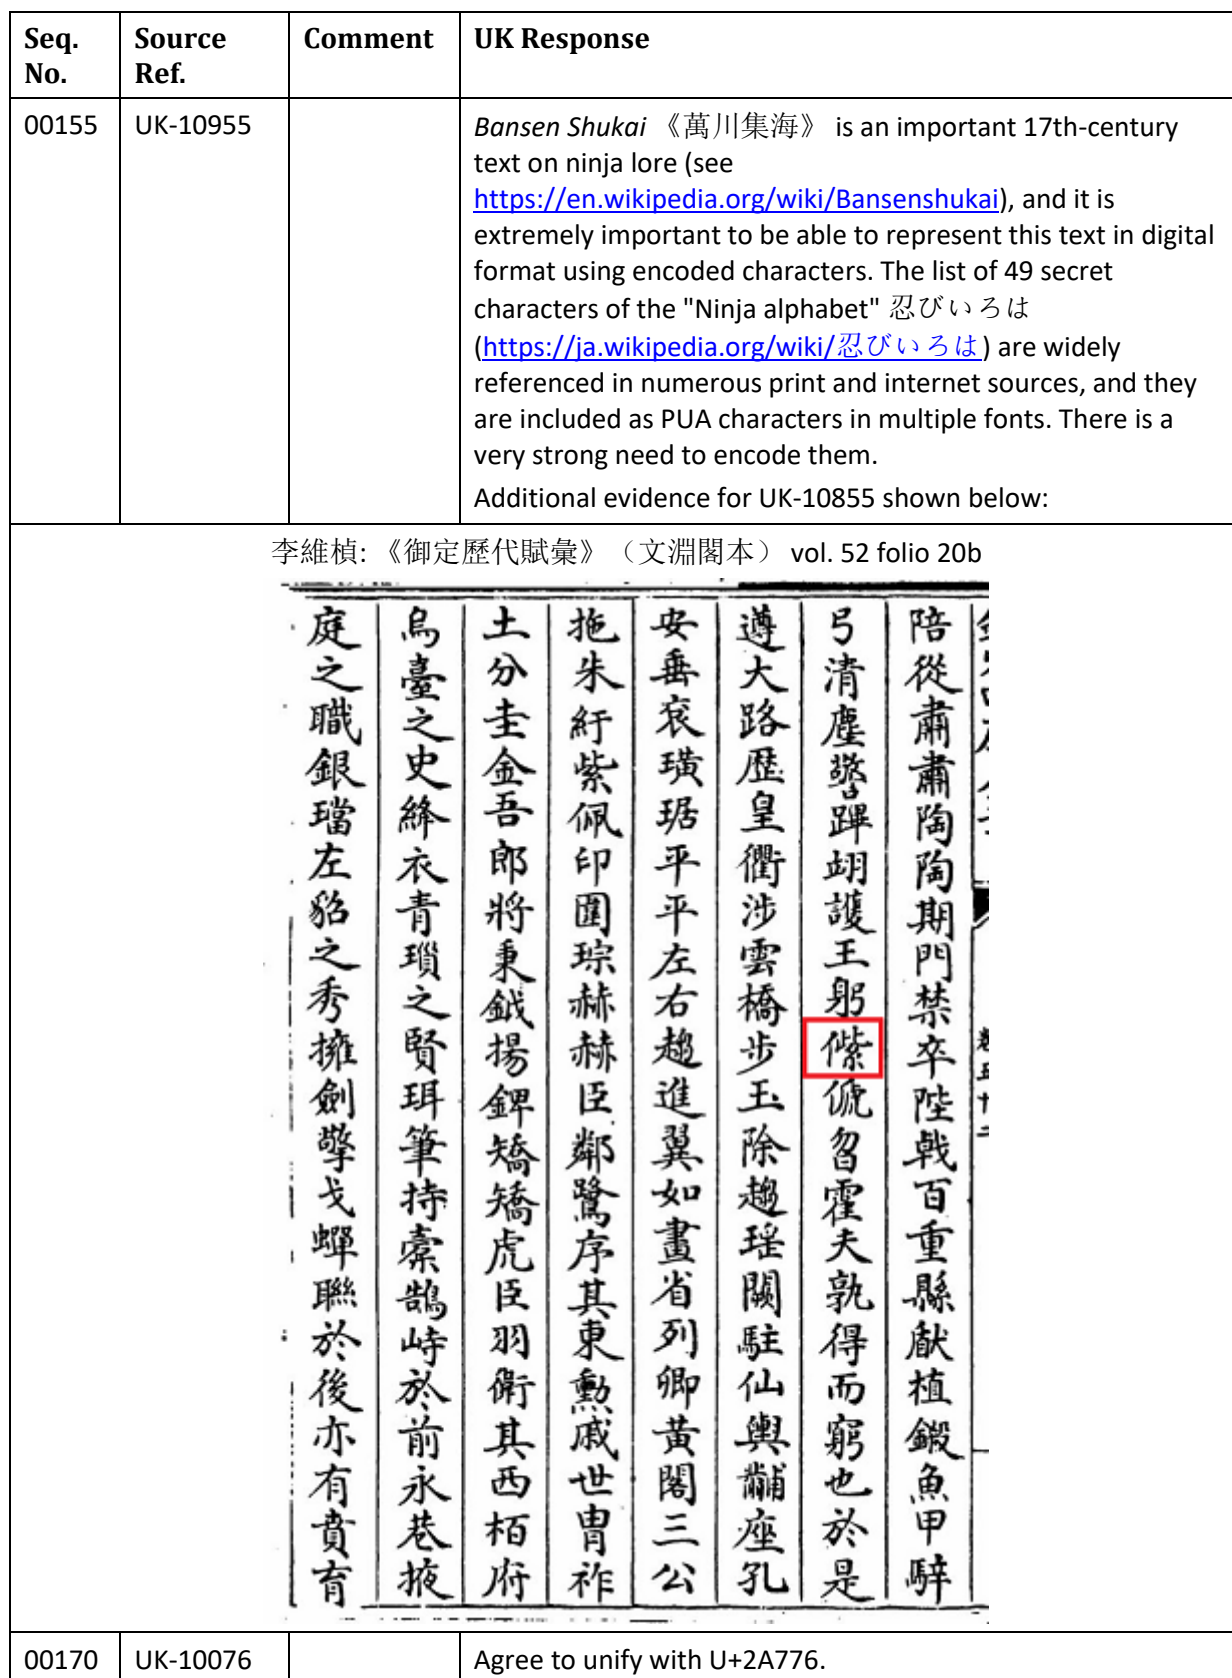 Seq. No.
Source Ref.
Comment
UK Response
00155
UK-10955
Bansen Shukai 《萬川集海》 is an important 17th-century
text on ninja lore (see
https://en.wikipedia.org/wiki/Bansenshukai), and it is
extremely important to be able to represent this text in digital
format using encoded characters. The list of 49 secret
characters of the "Ninja alphabet" 忍びいろは
(https://ja.wikipedia.org/wiki/忍びいろは) are widely
referenced in numerous print and internet sources, and they
are included as PUA characters in multiple fonts. There is a
very strong need to encode them.
Additional evidence for UK-10855 shown below:
李維楨: 《御定歷代賦彙》（文淵閣本） vol. 52 folio 20b
陪從肅肅陶陶期門禁卒陛戟百重縣瞂植鎩魚甲騂
弓清塵警蹕翊護王躬傂曶霍夫孰得而窮也於是
遵大路歴皇衢涉雲橋步玉除趨瑶闕駐仙輿黼座孔
安垂衮璜琚平平左右趨進翼如畫省列卿黃閣三公
拖朱紆紫佩印圍琮赫赫臣鄰鷺序其東勲戚世胄祚
土分圭金吾郎將秉鉞揚錍矯矯虎臣羽衛其西栢府
烏臺之史絳衣青瑣之賢珥筆持橐鵠峙於前永巷掖
庭之職銀璫左貂之秀擁劍擎戈蟬聯於後亦有賁育
00170
UK-10076
Agree to unify with U+2A776.